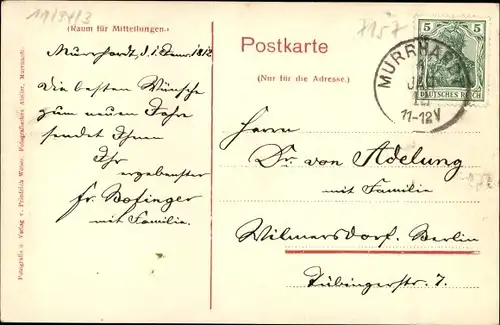 11/34/3
(Raum für Mitteilungen.)
Murrhardt, d. 1. Jann. 1912
Die besten Wünsche
zum neuen Jahre
sendet Ihnen
Ihr
ergebenster
Fr. Bofinger
mit Familie.
Fotografie u. Verlag v. Friedrich Weiser, Fotografisches Atelier, Murrhardt.
7157
Postkarte
(Nur für die Adresse.)
5 5
DEUTSCHES REICH
MURRHARDT
1
JAN
12
11-12V
Herrn
Dr. von Adelung
mit Familie
Wilmersdorf. Berlin
Tübingerstr. 7.